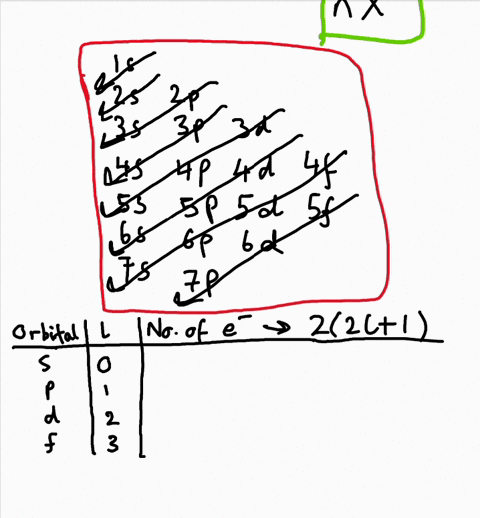 n x
1s
2s 2p
3s 3p 3d
4s 4p 4d 4f
5s 5p 5d 5f
6s 6p 6d
7s 7p
Orbital L No. of e⁻ → 2(2l+1)
s 0
p 1
d 2
f 3